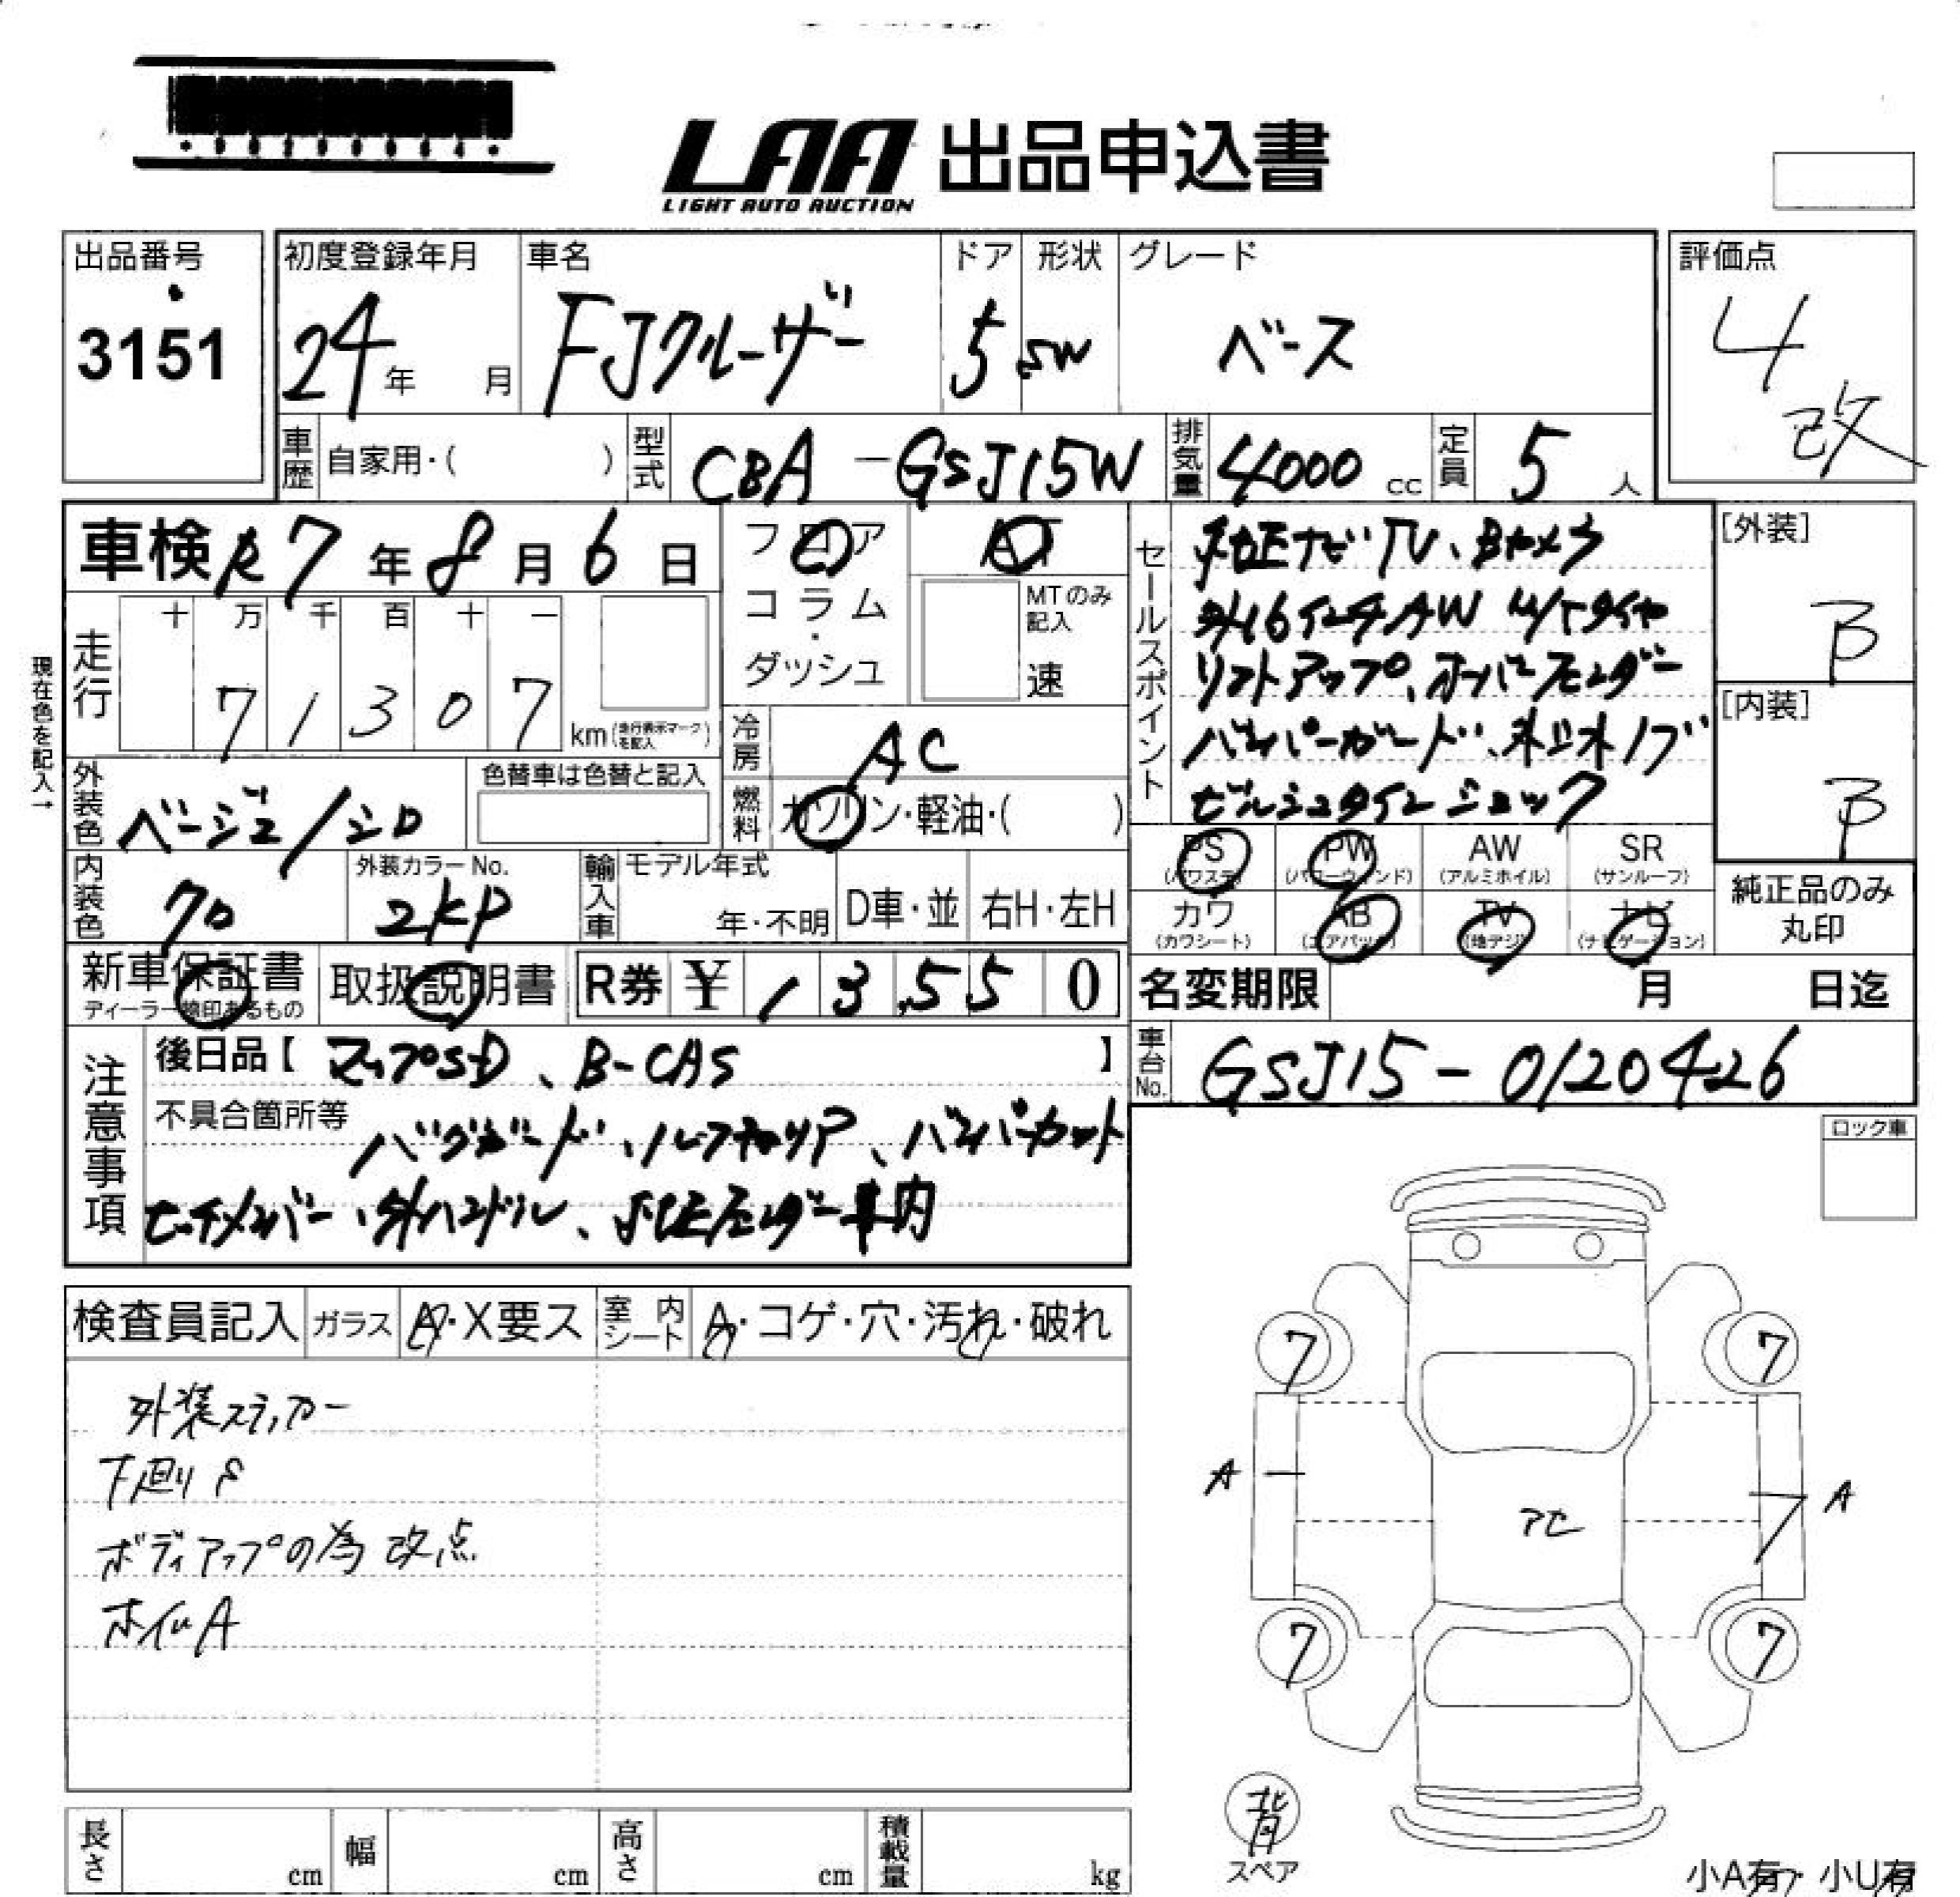 LAA 出品申込書
LIGHT AUTO AUCTION
出品番号
3151
初度登録年月
24年 月
車名
FJクルーザー
ドア
5
形状
SW
グレード
ベース
評価点
4
改
車歴 自家用・( )
型式 CBA-GSJ15W
排気量 4000 cc
定員 5 人
車検 R7年8月6日
フロア
コラム
・
ダッシュ
AT
MTのみ記入
速
走行
十 万 千 百 十 一
7 1 3 0 7
km(走行表示マークを記入)
現在色を記入→
冷房 AC
燃料 ガソリン・軽油・( )
外装色 ベージュ/シロ
色替車は色替と記入
内装色 クロ
外装カラーNo.
2KP
輸入車
モデル年式
年・不明
D車・並 右H・左H
セールスポイント
純正ナビTV、Bカメラ
外16インチAW M/Tタイヤ
リフトアップ、オーバーフェンダー
バンパーガード、木目木ノブ
ビルシュタインショック
[外装]
B
[内装]
B
PS
(パワステ)
PW
(パワーウィンド)
AW
(アルミホイル)
SR
(サンルーフ)
カワ
(カワシート)
AB
(エアバック)
TV
(地デジ)
ナビ
(ナビゲーション)
純正品のみ
丸印
新車保証書
ディーラー捺印あるもの
取扱説明書
R券 ¥ 13,550
名変期限 月 日迄
注意事項
後日品【 マップSD、B-CAS 】
車台No. GSJ15-0120426
不具合箇所等
バグガード、ルーフキャリア、バンパーカット
ヒッチメンバー、外ハンドル、純正フェンダー車内
ロック車
検査員記入 ガラス A・X要ス 室内シート A・コゲ・穴・汚れ・破れ
外装ステッカー
下廻りS
ボディアップの為 改点
ホイルA
7 7
A A
アセ
7 7
背
スペア
長さ cm 幅 cm 高さ cm 積載量 kg
小A有・小U有